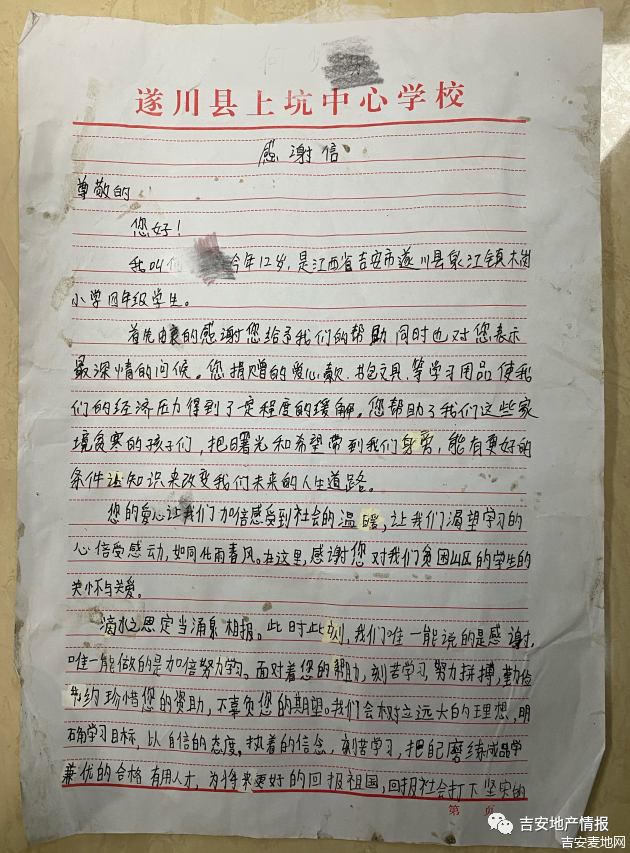 遂川县上坑中心学校
感谢信
尊敬的
您好!
我叫 今年12岁,是江西省吉安市遂川县泉江镇木岗
小学四年级学生。
首先由衷的感谢您给予我们的帮助同时也对您表示
最深情的问候。您捐赠的爱心款、书包文具、等学习用品使我
们的经济压力得到了一定程度的缓解。您帮助了我们这些家
境贫寒的孩子们,把曙光和希望带到我们身旁,能有更好的
条件让知识来改变我们未来的人生道路。
您的爱心让我们加倍感受到社会的温暖,让我们渴望学习的
心倍受感动,如同化雨春风。在这里,感谢您对我们贫困山区的学生的
关怀与关爱。
滴水之恩定当涌泉相报。此时此刻,我们唯一能说的是感谢,
唯一能做的是加倍努力学习。面对着您的帮助,刻苦学习,努力拼搏,勤俭
节约珍惜您的资助,不辜负您的期望。我们会树立远大的理想,明
确学习目标,以自信的态度,执着的信念,刻苦学习,把自己磨练成品学
兼优的合格有用人才,为将来更好的回报祖国,回报社会打下坚实的
第 页
吉安地产情报
吉安麦地网